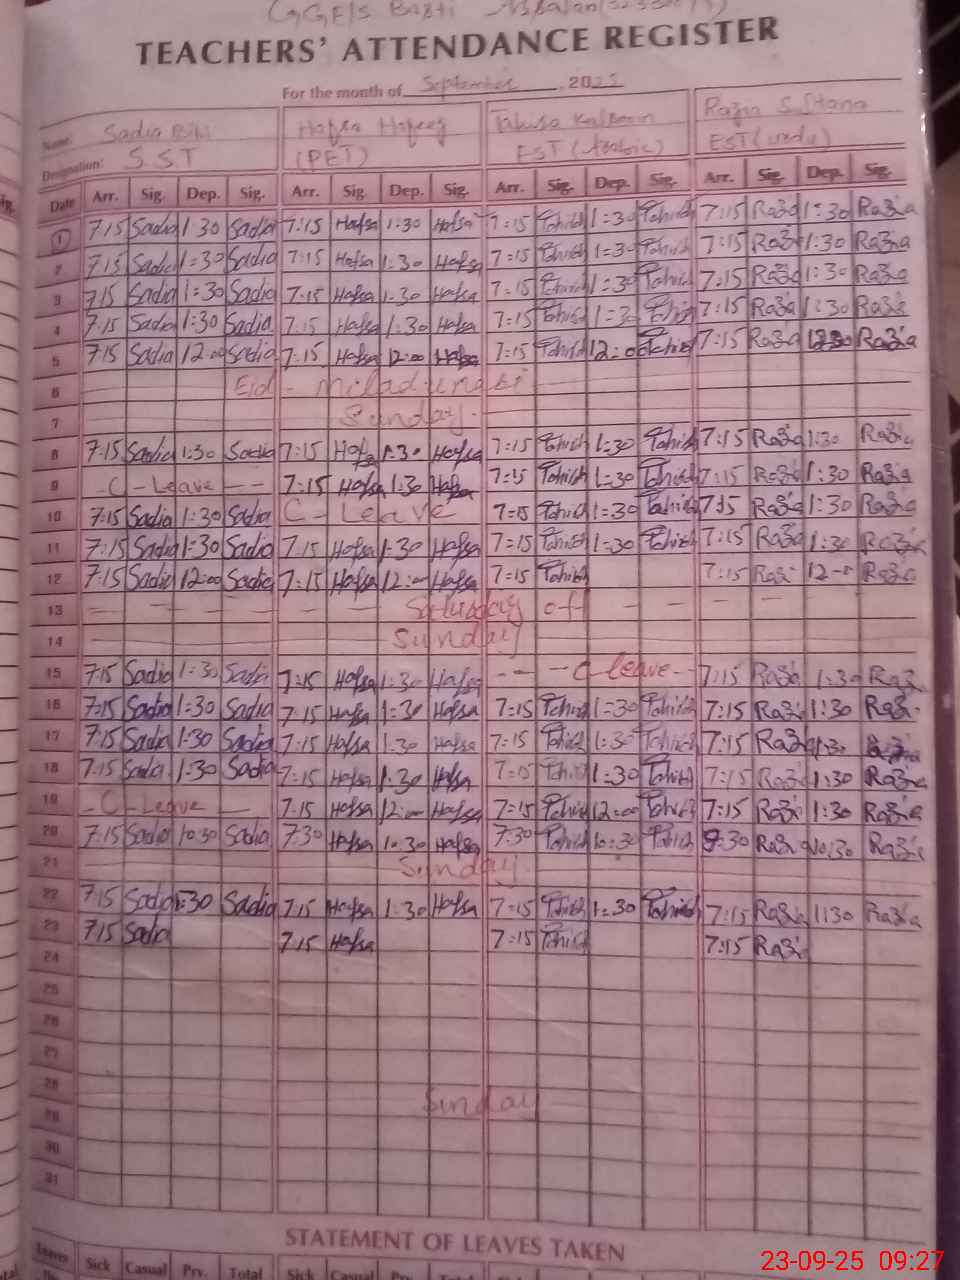 GGE/S Basti
TEACHERS' ATTENDANCE REGISTER
For the month of September, 202
Name: Sadia Bibi Hafsa Hafeez Tahira Kalsoom Razia Sultana
Designation: S.S.T (PET) EST (Arabic) EST (urdu)
Date Arr. Sig. Dep. Sig. Arr. Sig Dep. Sig. Arr. Sig. Dep. Sig. Arr. Sig. Dep. Sig.
1 7:15 Sadia 1:30 Sadia 7:15 Hafsa 1:30 Hafsa 7=15 1=30 7:15 Razia 1:30 Razia
2 7:15 Sadia 1=30 Sadia 7:15 Hafsa 1:30 Hafsa 7=15 1=30 7:15 Razia 1:30 Razia
3 7:15 Sadia 1=30 Sadia 7:15 Hafsa 1:30 Hafsa 7=15 1=30 7:15 Razia 1:30 Razia
4 7:15 Sadia 1:30 Sadia 7:15 Hafsa 1:30 Hafsa 7=15 1=30 7:15 Razia 1:30 Razia
5 7:15 Sadia 12:00 Sadia 7:15 Hafsa 12:00 Hafsa 7=15 12:00 7:15 Razia Razia
6 Eid - miladunabi
7 Sunday.
8 7:15 Sadia 1:30 Sadia 7:15 Hafsa 1:30 Hafsa 7=15 1=30 7:15 Razia 1:30 Razia
9 -C-Leave -- 7:15 Hafsa 1:30 Hafsa 7=15 1=30 7:15 Razia 1:30 Razia
10 7:15 Sadia 1:30 Sadia C-Leave 7=15 1=30 7:15 Razia 1:30 Razia
11 7:15 Sadia 1:30 Sadia 7:15 Hafsa 1:30 Hafsa 7=15 1=30 7:15 Razia 1:30 Razia
12 7:15 Sadia 12:00 Sadia 7:15 Hafsa 12:00 Hafsa 7=15 7:15 Razia 12-00 Razia
13 Saturday off
14 Sunday
15 7:15 Sadia 1:30 Sadia 7:15 Hafsa 1:30 Hafsa -- C-leave-- 7:15 Razia 1:30 Razia
16 7:15 Sadia 1:30 Sadia 7:15 Hafsa 1:30 Hafsa 7=15 1=30 7:15 Razia 1:30 Razia
17 7:15 Sadia 1:30 Sadia 7:15 Hafsa 1:30 Hafsa 7=15 1=30 7:15 Razia 1:30
18 7:15 Sadia 1:30 Sadia 7:15 Hafsa 1:30 Hafsa 7=15 1=30 7:15 Razia 1:30 Razia
19 -C-Leave - 7:15 Hafsa 12:00 Hafsa 7=15 12:00 7:15 Razia 1:30 Razia
20 7:15 Sadia 10:30 Sadia 7:30 Hafsa 10:30 Hafsa 7:30 10:30 :30 Razia 10:30 Razia
21 Sunday.
22 7:15 Sadia 1:30 Sadia 7:15 Hafsa 1:30 Hafsa 7=15 1=30 7:15 Razia 1:30 Razia
23 7:15 Sadia 7:15 Hafsa 7=15 7:15 Razia
24
25
26
27
28 Sunday
29
30
31
STATEMENT OF LEAVES TAKEN
Leaves Sick Casual Prv. Total Sick Casual Prv. Total
23-09-25 09:27